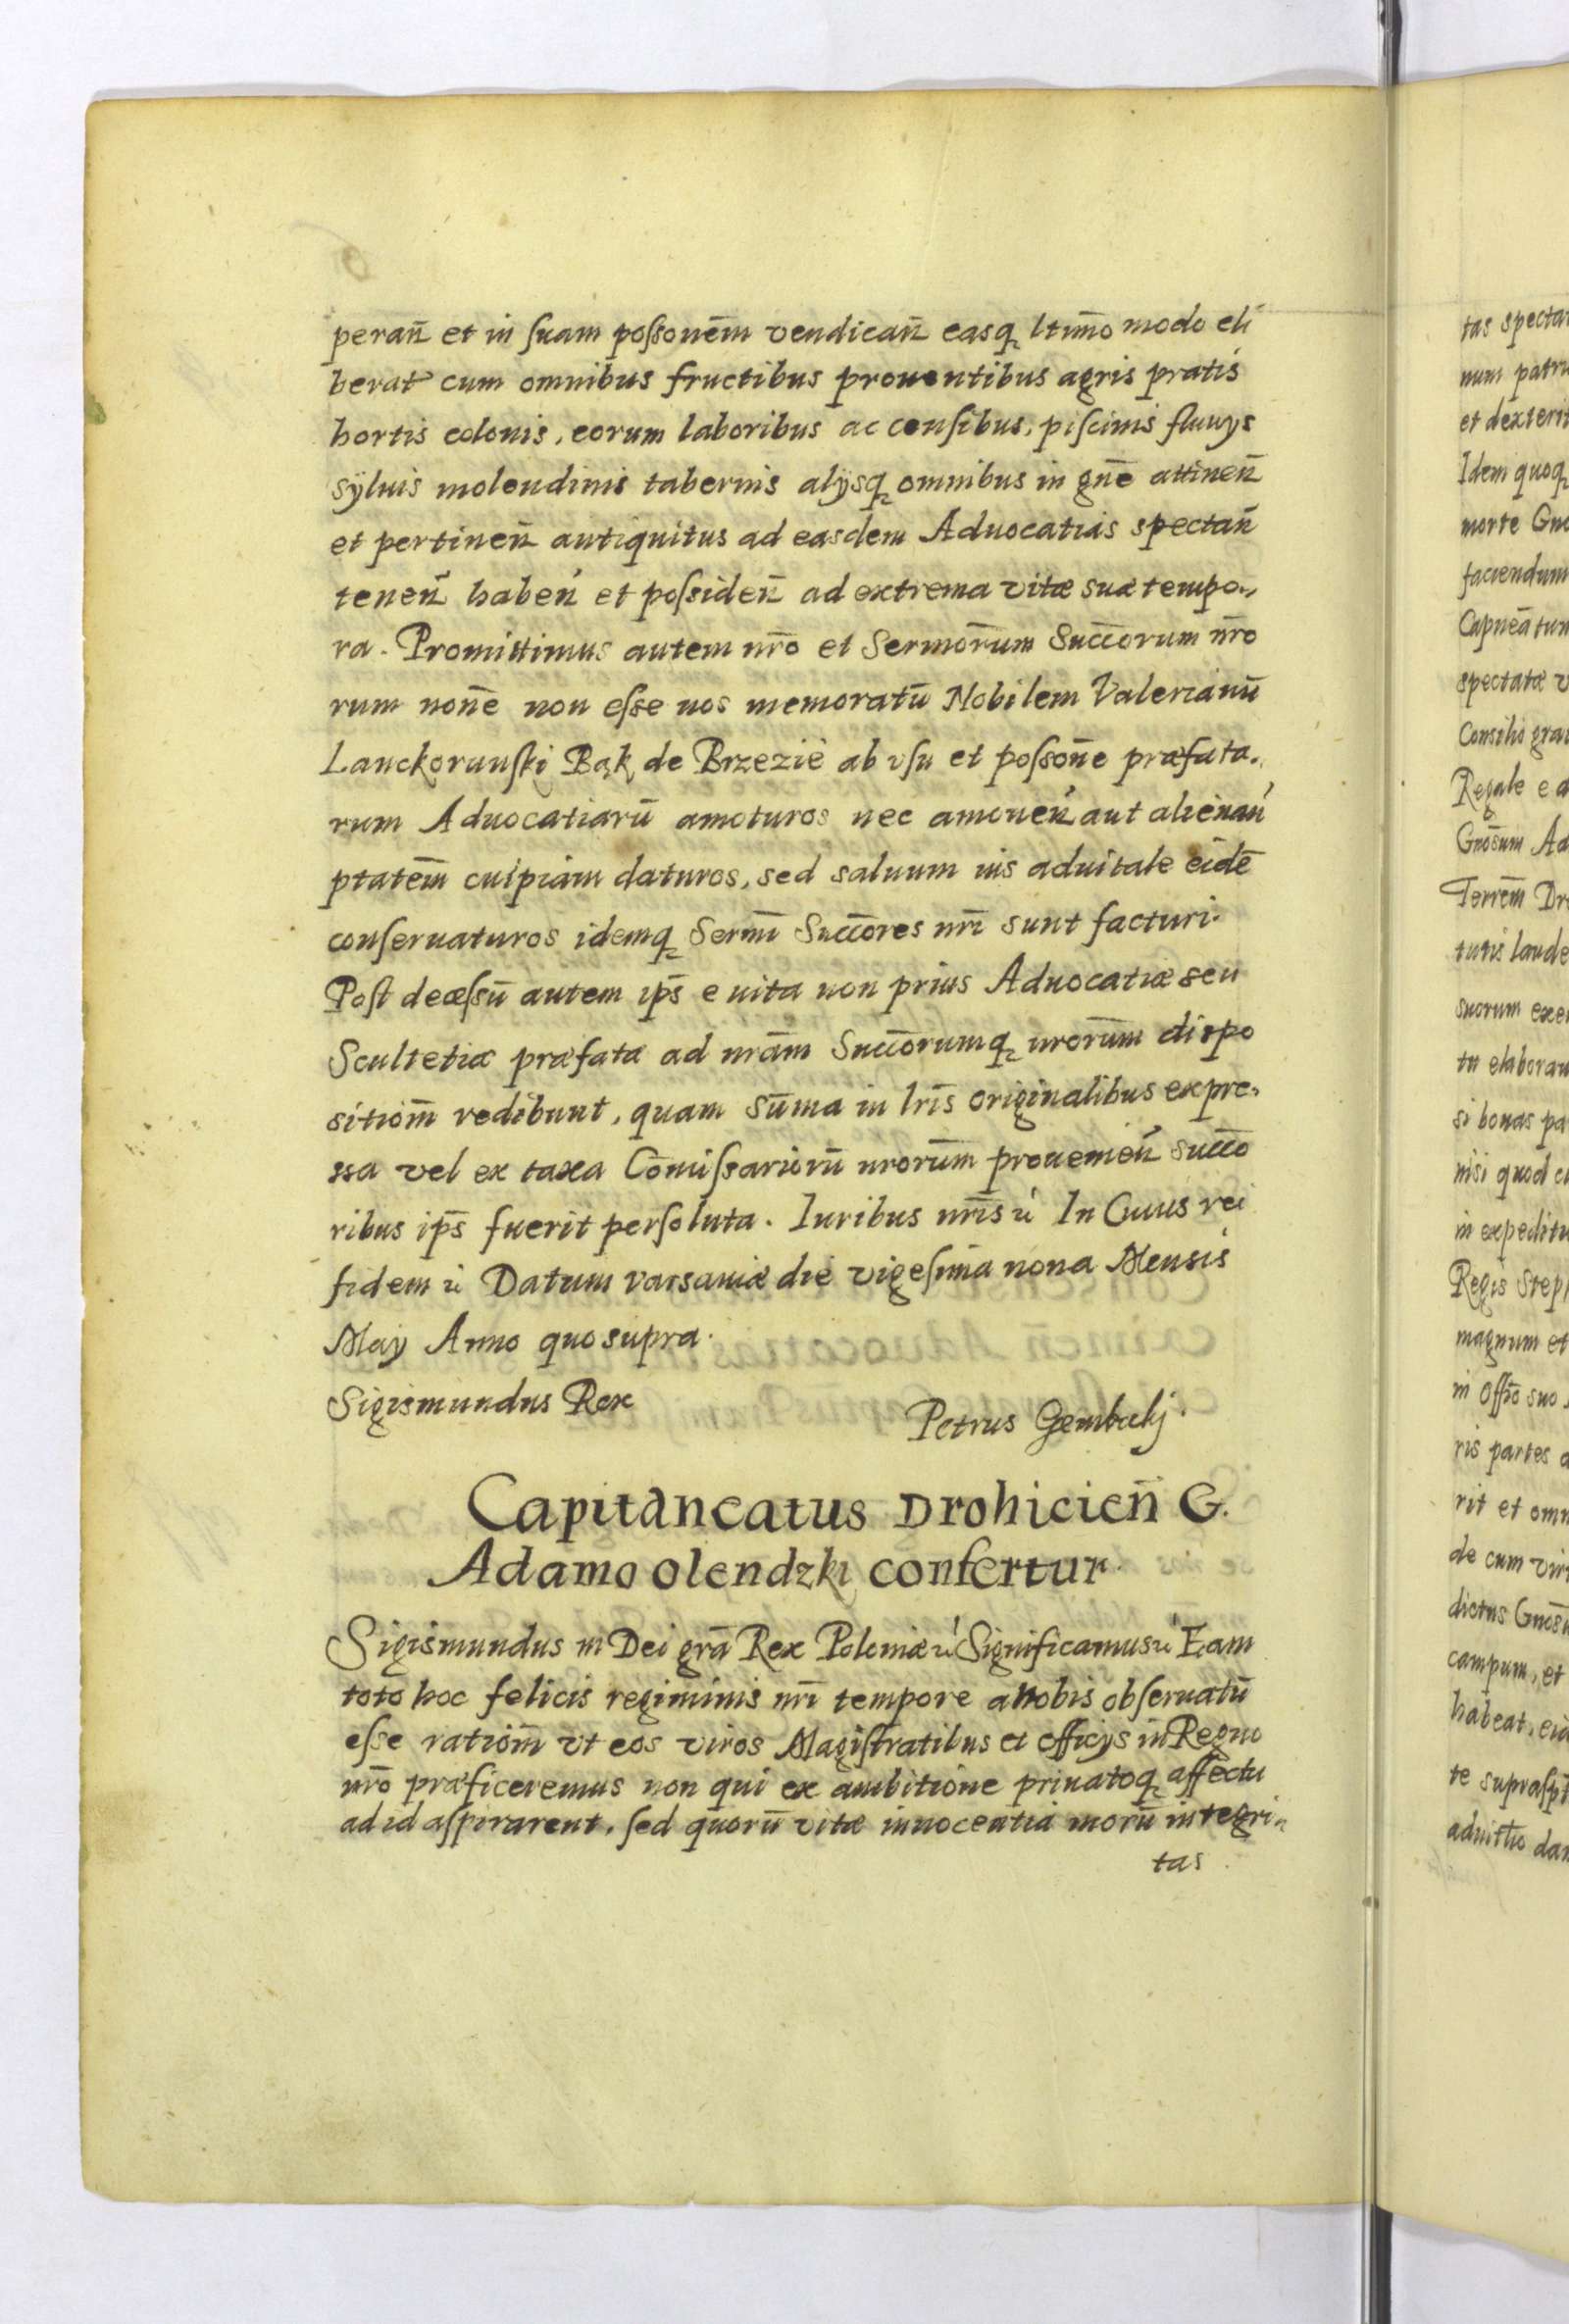 peran̄ et in ſuam poſſonēm vendican̄ easq̨ ltimō modo eli
berat cum omnibus fructibus prouentibus agris pratis
hortis colonis, eorum laboribus ac censibus, piſcinis fluuijs
sÿluis molendinis tabernis alÿsq̨ omnibus in gn̄e attinen̄
et pertinen̄ antiquitus ad easdem Aduocatias spectan̄
tenen̄ haben̄ et poſsiden̄ ad extrema vitæ suæ tempo-
ra. Promittimus autem nrō et Sermōrum Succōrum nrō
rum non̄e non eſse nos memoratū Nobilem Valerianū
Lanckorunſki Bąk de Brzezie ab vſu et poſson̄e præfata-
rum Aduocatiarū amoturos nec amouen̄ aut alienan̄
ptatēm cuipiam daturos, sed saluum ius aduitale eidē
conſeruaturos idemq̨ Sermī Succōres nrī sunt facturi.
Poſt deceſsū autem ip̄s e uita non prius Aduocatiæ seu
Scultetiæ præfatæ ad nrām Succōrumq̨ nrorūm dispo
sitiōm redibunt, quam sūma in lrīs originalibus expre-
ssa vel ex taxa Cōmiſsariorū nrorūm prouenien̄ succō
ribus ip̄s fuerit perſoluta. Iuribus nrīs ú In Cuius rei
fidem ú Datum Varsauiæ die vigeſima nona Mensis
May Anno quo supra.
Sigismundus Rex
Petrus Gembicki.
Capitaneatus Drohicien̄ G.
Adamo Olendzki confertur.
Sigismundus III Dei grā Rex Poloniæ ú Significamus ú Eam
toto hoc felicis regiminis nrī tempore a nobis obſeruatū
eſse ratiōm vt eos viros Magiſtratibus et officijs in Regno
nrō præficeremus non qui ex ambitione priuatoq̨ affectu
ad id aſpirarent, ſed quorū vitæ innocentia morū integri-
tas
tas
num
et
Idem quoq̨
morte
faciendum
spectatæ
Consilio
Regale
Gnosūm
Terrēm
turis
suorum
tu
si bonas
nisi quod
in
Regis
magnum et
in Offiō suo
ris partes
rit et
de cum
dictus
campum, et
habeat,
te